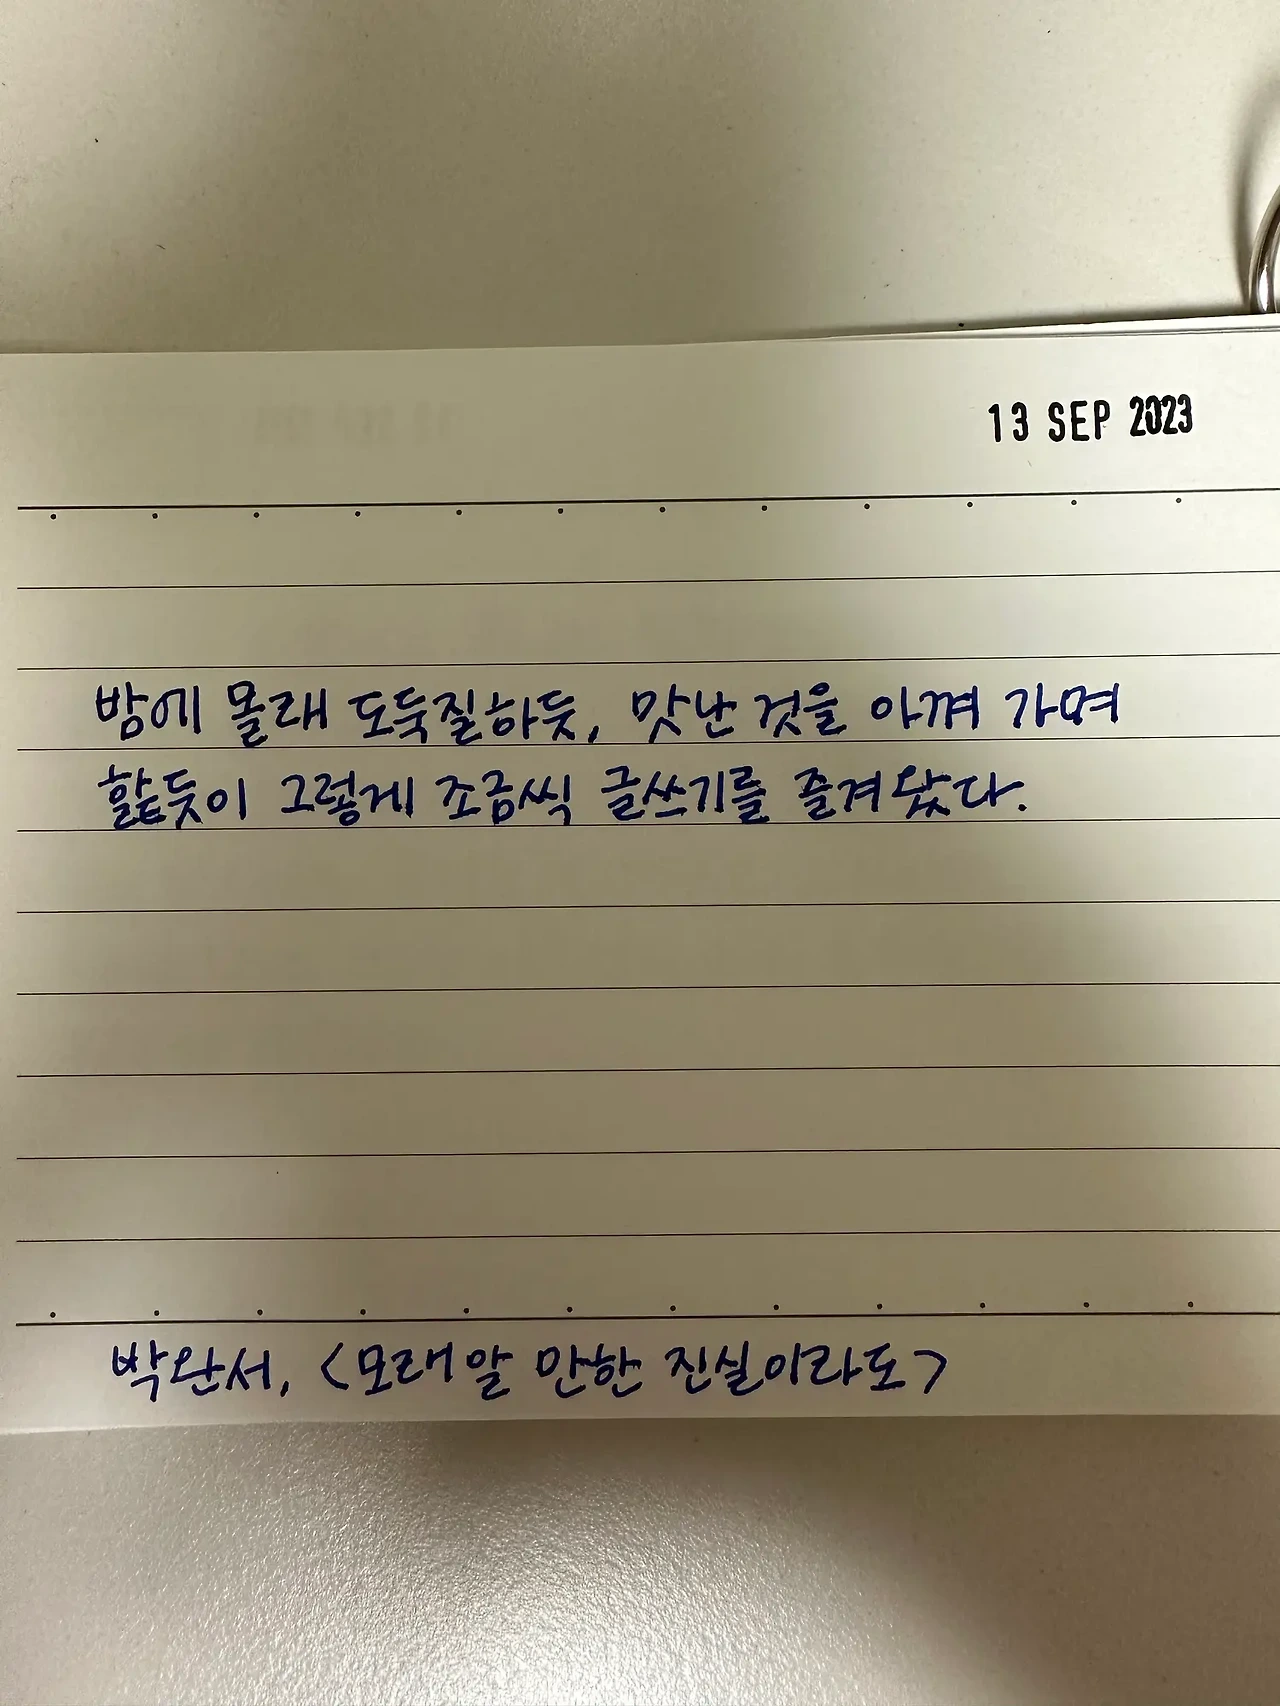 13 SEP 2023
밤에 몰래 도둑질하듯, 맛난 것을 아껴 가며
핥듯이 그렇게 조금씩 글쓰기를 즐겨왔다.
박완서, <모래알 만한 진실이라도>